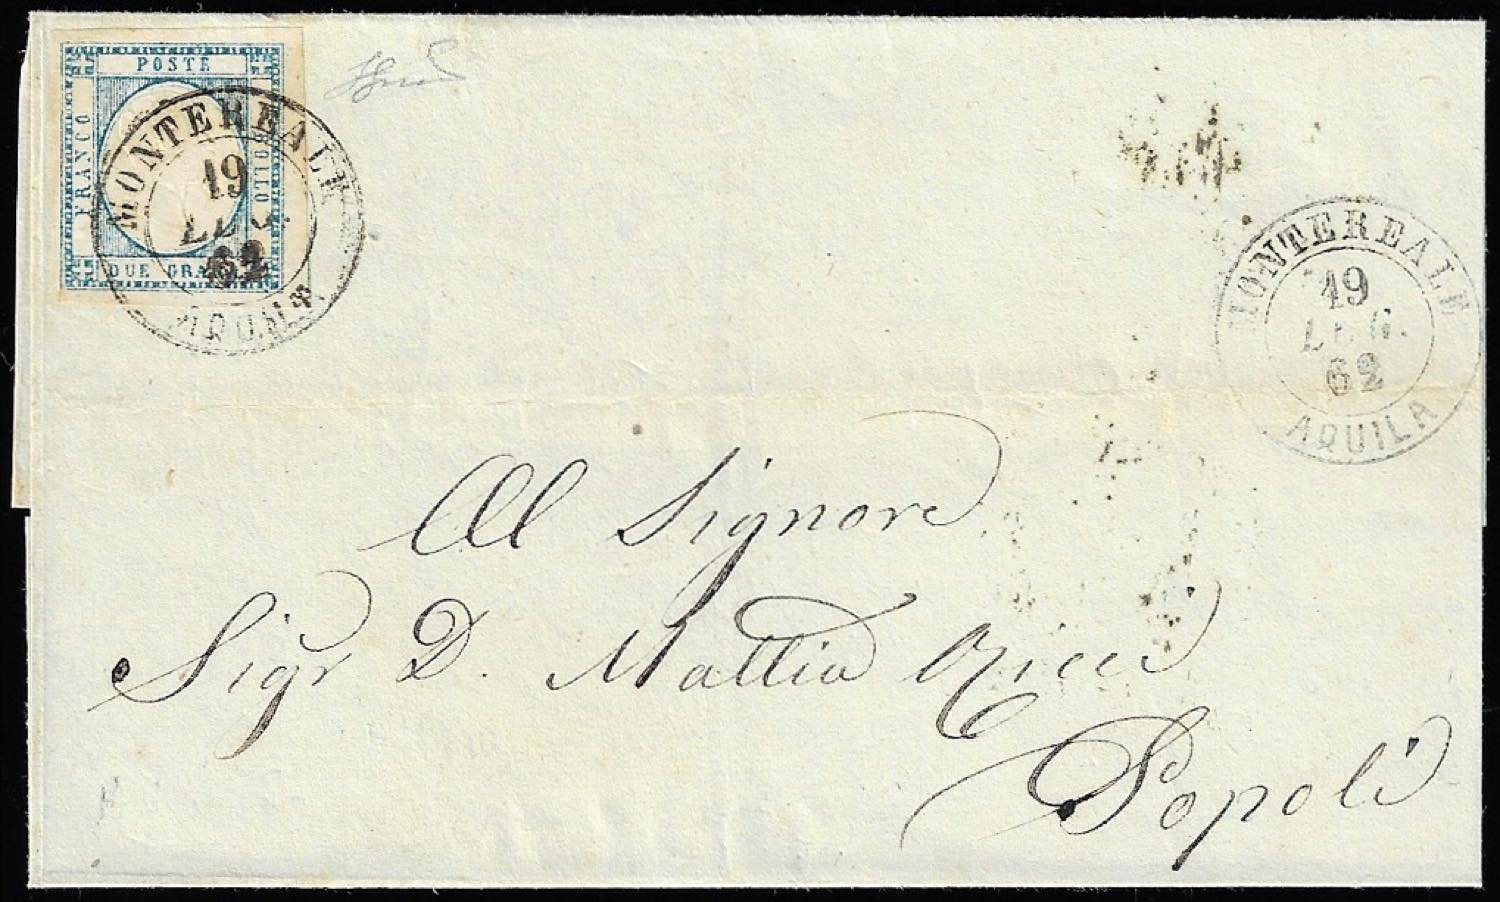 POSTE
FRANCO
BOLLO
DUE GRA
MONTEREALE
19
62
AQUILA
MONTEREALE
19
LUG.
62
AQUILA
Al Signore
Sigr D. Mattia Ricci
Popoli